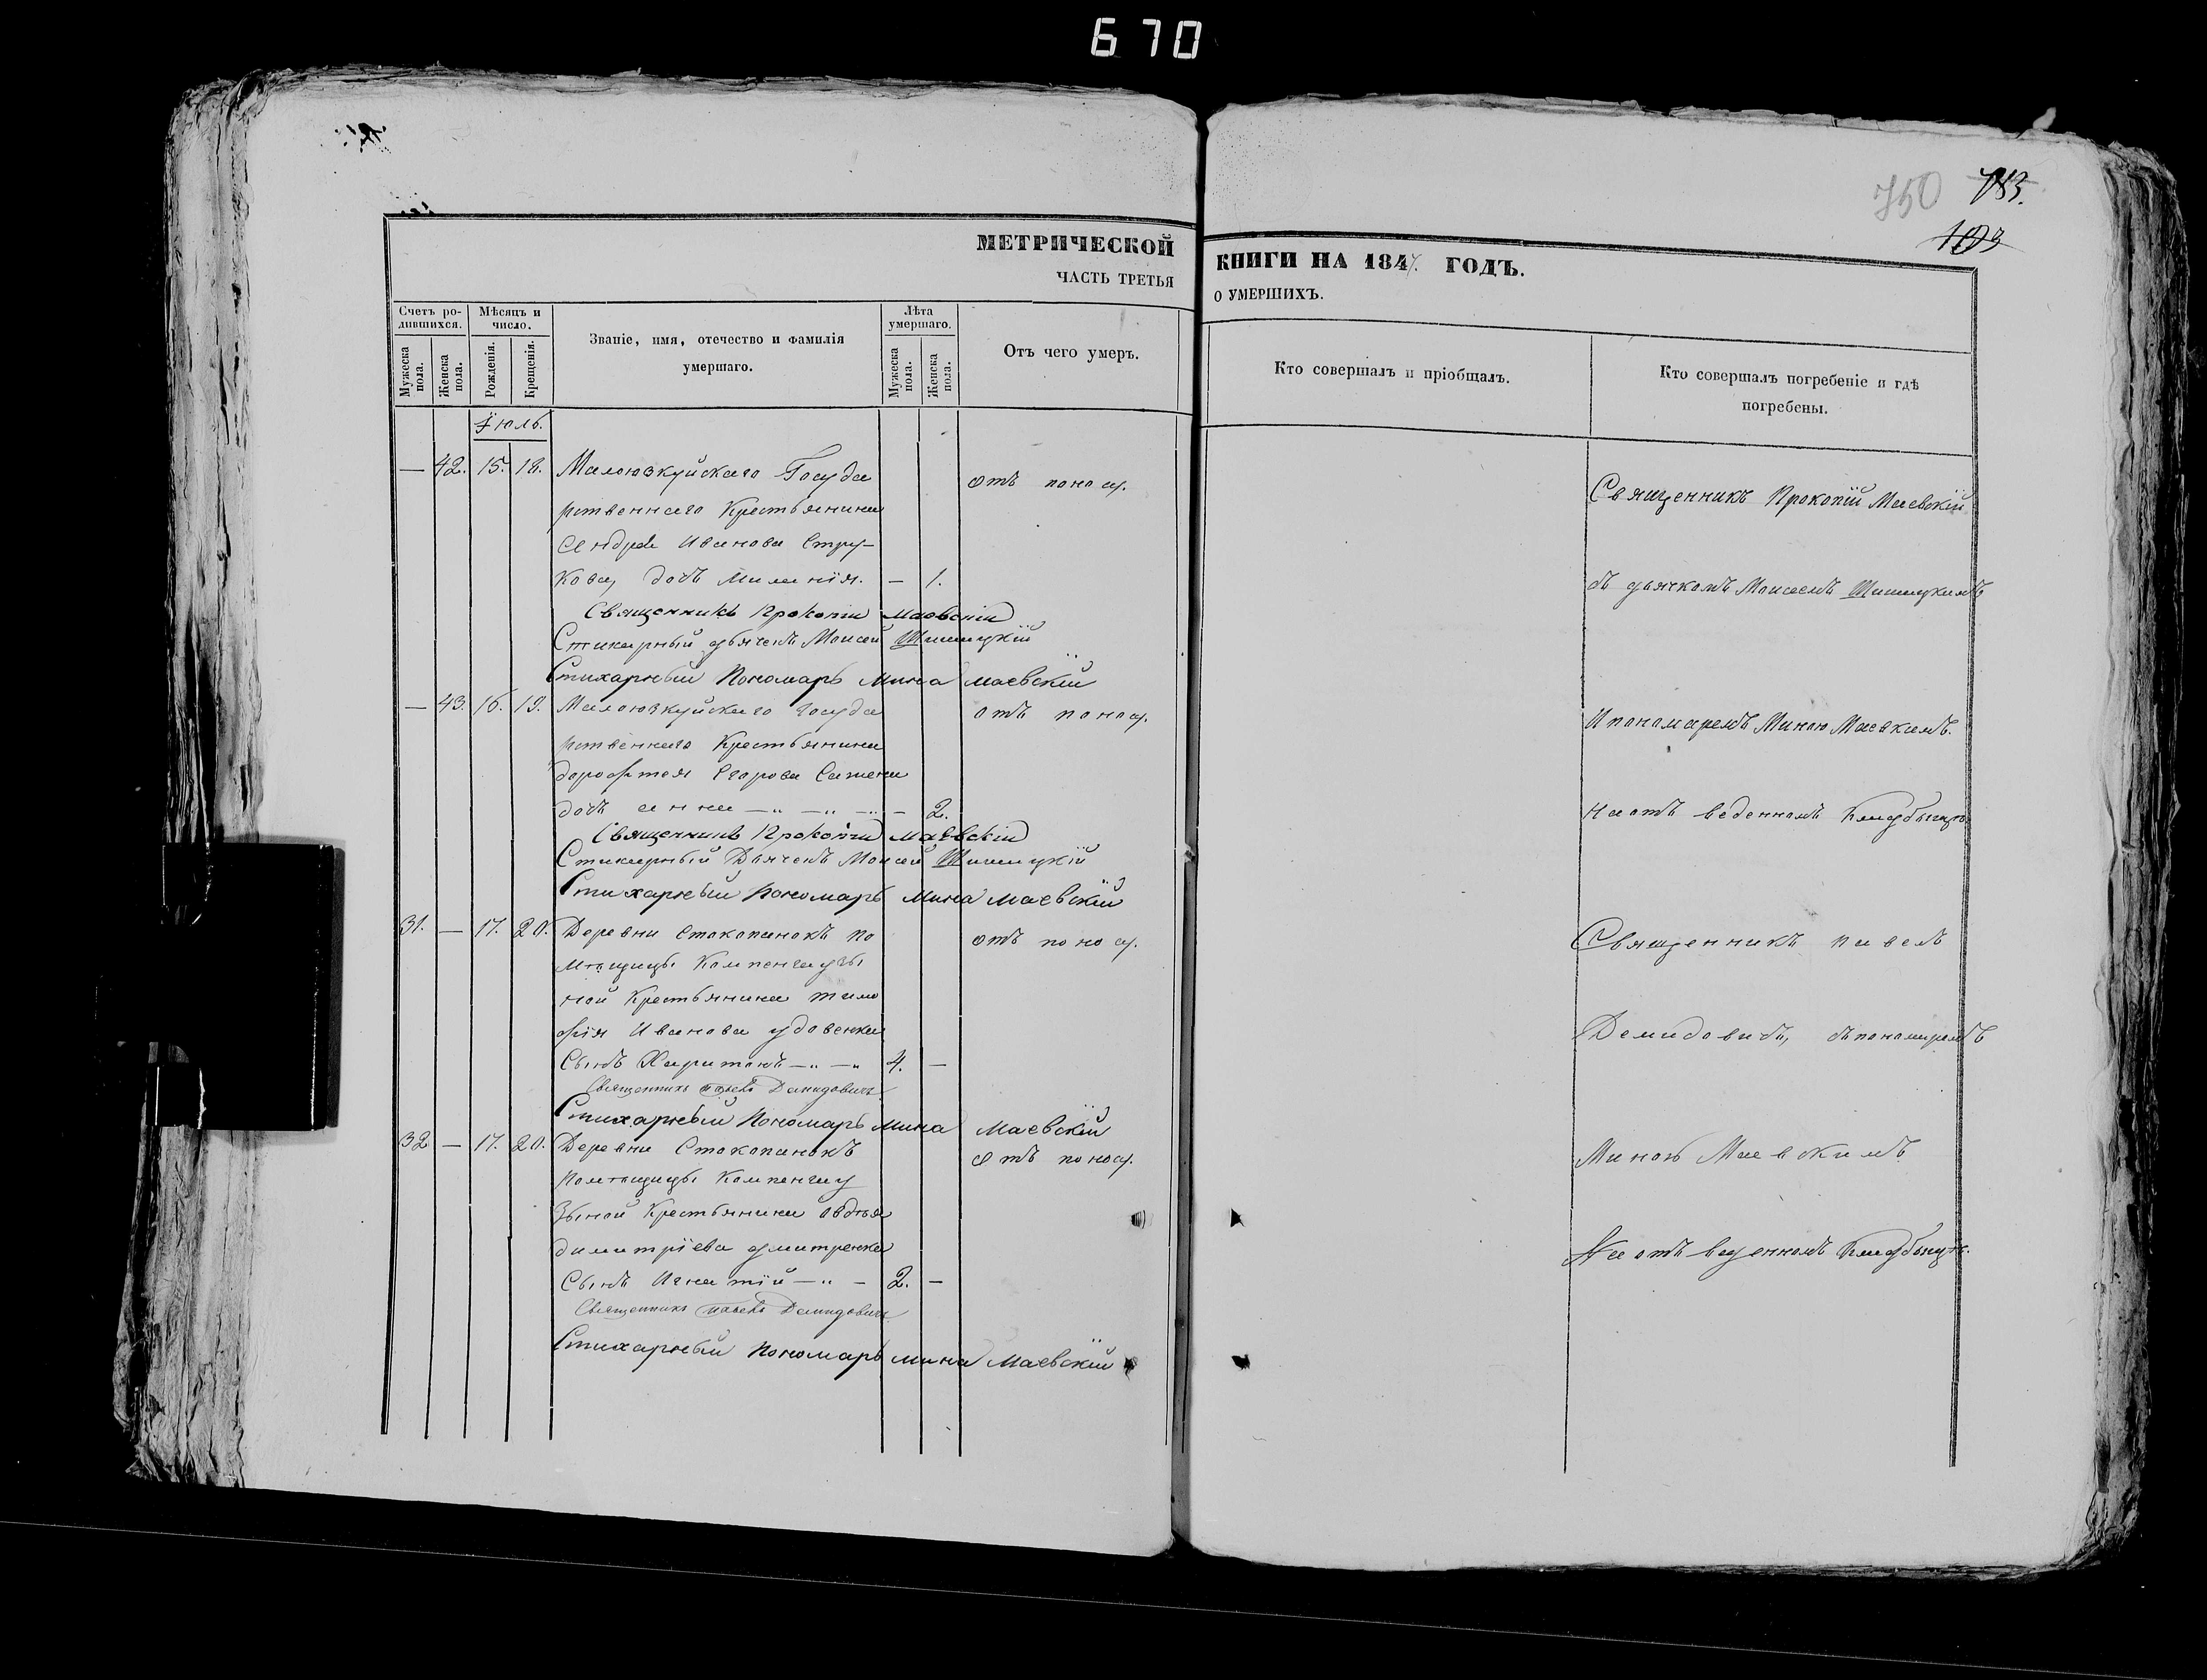 670
750 783.
193
МЕТРИЧЕСКОЙ КНИГИ НА 1847. ГОДЪ.
ЧАСТЬ ТРЕТЬЯ О УМЕРШИХЪ.
Счетъ ро-
дившихся.
Мужеска
пола.
Женска
пола.
Мѣсяцъ и
число.
Рожденія.
Крещенія.
Званіе, имя, отечество и фамилія
умершаго.
Лѣта
умершаго.
Мужеска
пола.
Женска
пола.
Отъ чего умеръ.
Кто совершалъ и пріобщалъ.
Кто совершалъ погребеніе и гдѣ
погребены.
Іюль.
— 42. 15. 18. Малоюзкуйскаго Госуда
рственнаго Крестьянина
Андрея Иванова Стру-
кова, дочь Миланія. — 1.
отъ поносу.
Священникъ Прокопій Маевскій
Стихарный дьячекъ Моисей Шишицкій
Стихарный Пономарь Мина Маевскій
— 43. 16. 19. Малоюзкуйскаго госуда
рственнаго Крестьянина
дорофтея Егорова
дочь анна — „ — „ — „ — 2.
отъ поносу.
Священникъ Прокопій Маевскій
Стихарный Дьячекъ Моисей Шишицкій
Стихарный Пономарь Мина Маевскій
31. — 17. 20. Деревни Стокопанокъ по
мѣщицы
ной Крестьянина тимо
фія Иванова удовенка
Сынъ Харитонъ — „ — „ 4. —
отъ поносу.
Священникъ Павелъ Демидовичъ
Стихарный Пономарь Мина Маевскій
32 — 17. 20. Деревни Стокопанокъ
помѣщицы Компанчиу
зыной Крестьянина авдѣя
димитріева дмитренка
Сынъ Игнатій — „ — 2. —
Отъ поносу.
Священникъ Павелъ Демидовичъ
Стихарный Пономарь Мина Маевскій
Священникъ Прокопій Маевскій
съ дьячкомъ Моисеемъ Шишицкимъ
И пономаремъ Миною Маевкимъ.
на отъ веденномъ Кладбищѣ
Священникъ павелъ
Демидовичъ, съ пономаремъ
Миною Маевскимъ
На отъ веденномъ Кладбищѣ.